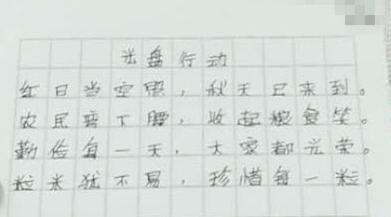 光盘行动
红日当空照，秋天已来到。
农民弯下腰，收起粮食笑。
勤俭每一天，大家都光荣。
粒米犹不易，珍惜每一粒。